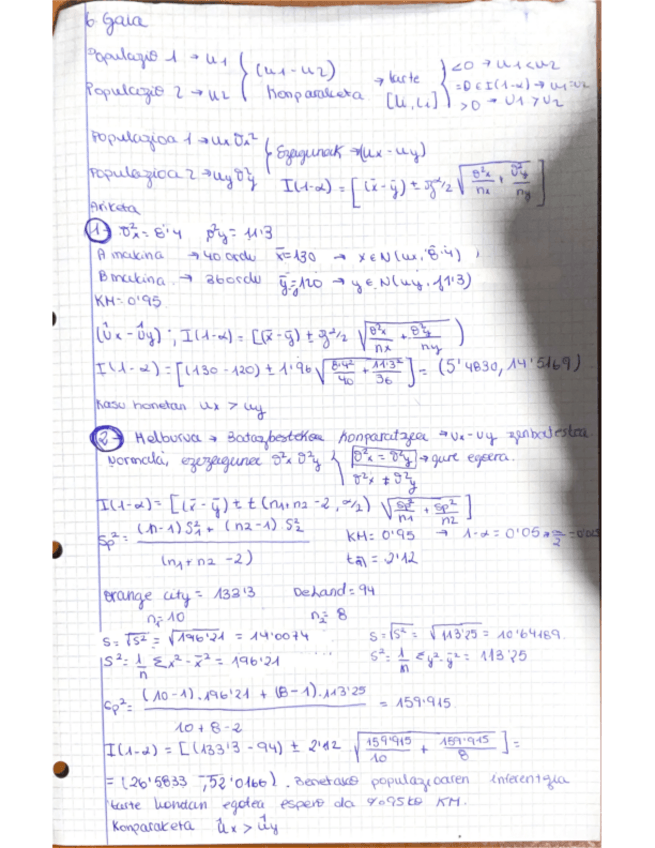 6 Gaia
Populazio 1 → u1 { (u1 - u2) → tarte { <0 → u1 < u2
Populazio 2 → u2 Konparaketa [Li, Ls] =0 ∈ I(1-α) → u1 = u2
>0 → u1 > u2
Populazioa 1 → ux σx² { Ezagunak → (ux - uy)
Populazioa 2 → uy σ²y I(1-α) = [(x̄ - ȳ) ± z α/2 √(σ²x/nx + σ²y/ny)]
Ariketa
1- σ²x = 8'4 σ²y = 11'3
A makina → 40 ordu x̄=130 → x ∈ N(ux, 8'4)
B makina → 36 ordu ȳ=120 → y ∈ N(uy, 11'3)
KM = 0'95
(ûx - ûy); I(1-α) = [(x̄ - ȳ) ± z α/2 √(σ²x/nx + σ²y/ny))
I(1-α) = [(130-120) ± 1'96 √(8'4²/40 + 11'3²/36)] = (5'4830, 14'5169)
Kasu honetan ux > uy
2- Helburua → Batazbestekoa konparatzea → ux - uy zenbatestea
Normala, ezezagunee σ²x σ²y { σ²x = σ²y → gure egoera.
σ²x ≠ σ²y
I(1-α) = [(x̄ - ȳ) ± t (n1+n2-2, α/2) √(Sp²/n1 + Sp²/n2)]
Sp² = ((n-1) S²1 + (n2-1) S²2)/(n1+n2-2) KM = 0'95 → 1-α = 0'05
= 2'12
Orange City = 133'3 Deland = 94
n1= 10 n2= 8
S = √S² = √196'21 = 14'0074 S = √S² = √113'25 = 10'64189
S² = 1/n Σx² - x̄² = 196'21 ... S² = 1/n Σy² - ȳ² = 113'25
Sp² = ((10-1)·196'21 + (8-1)·113'25)/(10+8-2) = 159'915
I(1-α) = [(133'3 - 94) ± 2'12 √(159'915/10 + 159'915/8)] =
= (26'5833, 52'0166). Benetako populazioaren inferentzia
tarte hondan egotea espero da %95ko KM.
Konparaketa ûx > ûy